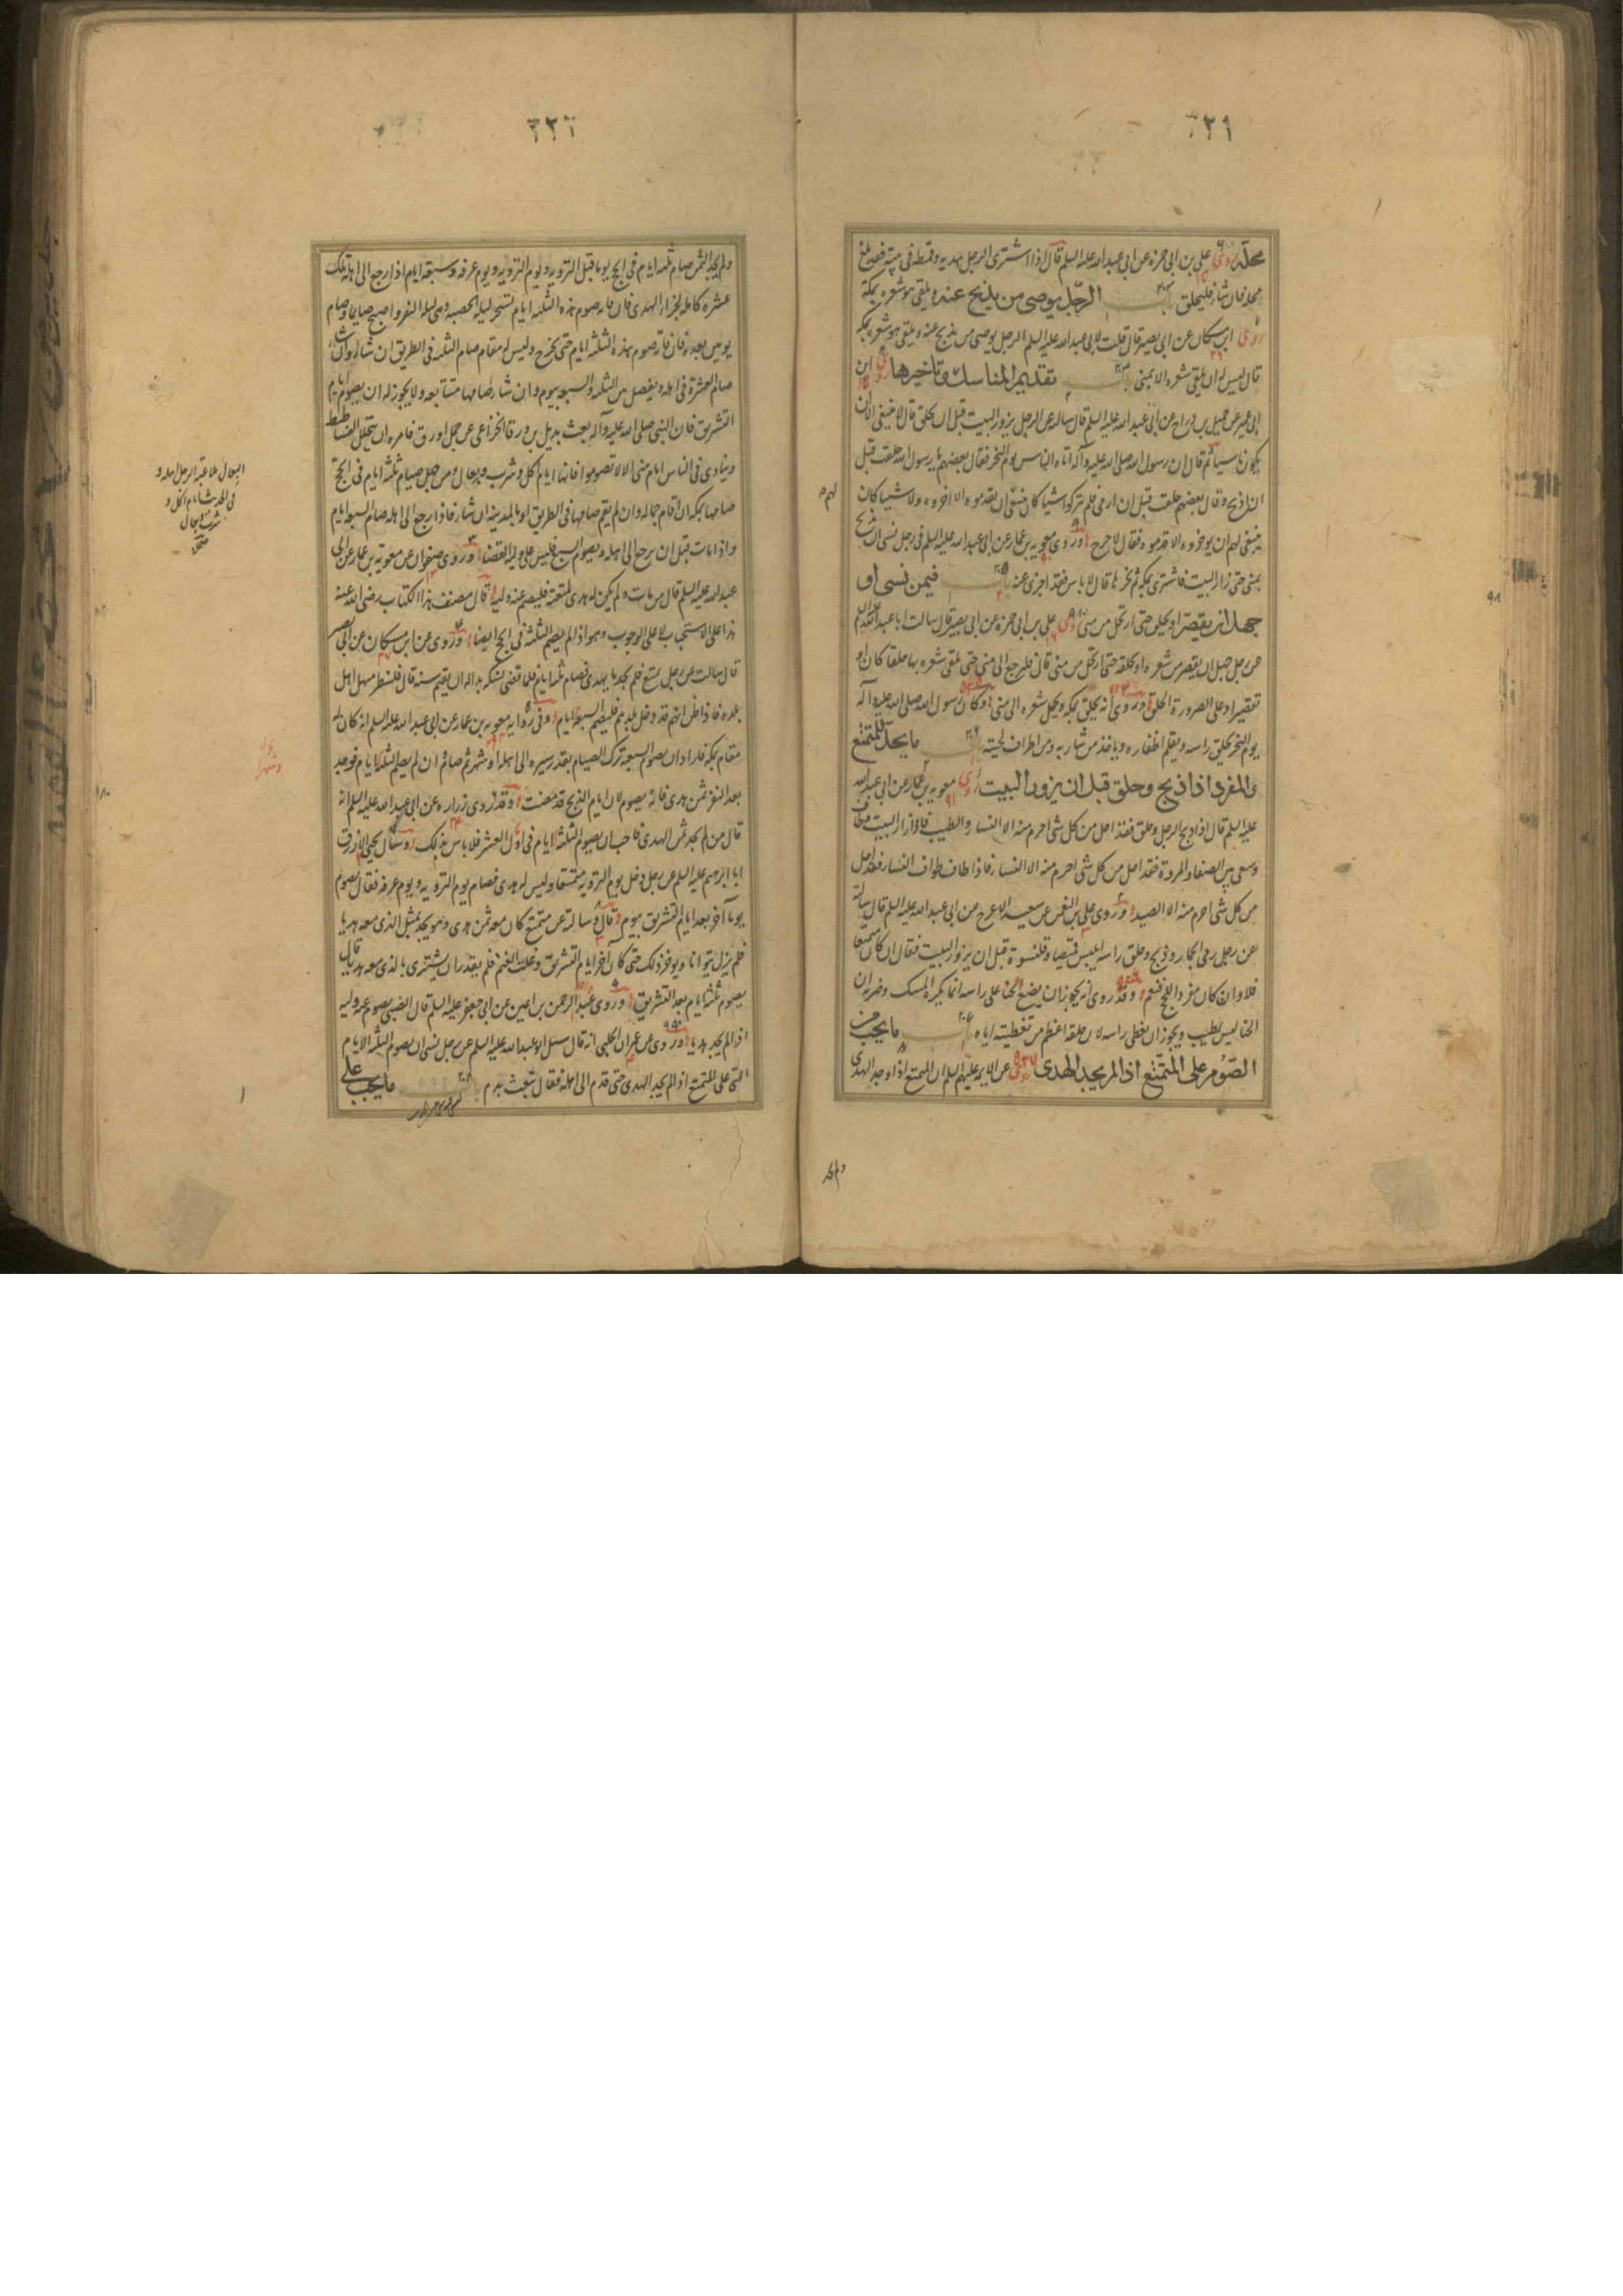 ٣٢١
محله روى علي بن ابى حمزه عن ابى عبد الله عليه السلم قال اذا اشترى الرجل هديه وقمطه فى بيته فقد بلغ
محله فان شاء فليحلق باب الرّجل يوصى من يذبح عنه ويلقى هو شعره بمكة
روى ابن مسكان عن ابى بصير قال قلت لابى عبد الله عليه السلم الرجل يوصى من يذبح عنه ويلقى هو شعره بمكه
قال ليس له ان يلقى شعره الا بمنى باب تقديم المناسك وتاخيرها روى ابن
ابى عمير عن جميل بن دراج عن ابى عبد الله عليه السلم قال سالته عن الرجل يزور البيت قبل ان يحلق قال لا ينبغى الا ان
يكون ناسيا ثم قال ان رسول الله صلى الله عليه وآله اتاه الناس يوم النحر فقال بعضهم يا رسول الله حلقت قبل
ان اذبح وقال بعضهم حلقت قبل ان ارمى فلم يتركوا شيئا كان ينبغى ان يقدموه الا اخروه ولا شيئا كان
لهم
ينبغى لهم ان يوخروه الا قدموه فقال لا حرج وروى معويه بن عمار عن ابى عبد الله عليه السلم فى رجل نسى ان يذبح
بمنى حتى زار البيت فاشترى بمكه ثم نحرها قال لا باس فقد اجزى عنه باب فيمن نسى او
جهل ان يقصّر او يحلق حتى ارتحل من منى روى على بن ابى حمزه عن ابى بصير قال سالت ابا عبد الله عليه السلم
عن رجل جهل ان يقصر من شعره او يحلقه حتى ارتحل من منى قال فليرجع الى منى حتى يلقى شعره بها حلقا كان او
تقصيرا وعلى الصرورة الحلق وروى انه يحلق بمكه ويحمل شعره الى منى وكان رسول الله صلى الله عليه وآله
يوم النحر يحلق راسه ويقلم اظفاره وياخذ من شاربه ومن اطراف لحيته باب ما يحلّ للمتمتع
والمفرد اذا ذبح وحلق قبل ان يزور البيت روى معويه بن عمار عن ابى عبد الله
عليه السلم قال اذا ذبح الرجل وحلق فقد احل من كل شى احرم منه الا النساء والطيب فاذا زار البيت وطاف
وسعى بين الصفا والمروة فقد احل من كل شى احرم منه الا النساء فاذا طاف طواف النساء فقد احل
من كل شى احرم منه الا الصيد وروى على بن النعمن عن سعيد الاعرج عن ابى عبد الله عليه السلم قال سالته
عن رجل رمى الجمار وذبح وحلق راسه ايلبس قميصا وقلنسوة قبل ان يزور البيت فقال ان كان متمتعا
فلا وان كان مفردا للحج فنعم وقد روى انه يجوز ان يضع الحنا على راسه انما يكره المسك وضربه ان
الحنا ليس بطيب ويجوز ان يغطى راسه لان حلقه اعظم من تغطيته اياه باب ما يجب من
الصّوم على المتمّتع اذا لم يجد الهدى روى عن الايمه عليهم السلم ان المتمتع اذا وجد الهدى
ولم يجد
٣٢٢
ولم يجد الثمن صام ثلثه ايام فى الحج يوما قبل الترويه ويوم الترويه ويوم عرفه وسبعة ايام اذا رجع الى اهله تلك
عشره كامله لجزاء الهدى فان فاته صوم هذه الثلثه الايام تسحر ليلة الحصبه وهى ليلة النفر واصبح صايما وصام
يومين بعد فان فاته صوم هذه الثلثه الايام حتى يخرج وليس له مقام صام الثلثه فى الطريق ان شاء وان شاء
صام العشرة فى اهله ويفصل بين الثلثه والسبعه بيوم وان شاء صامها متتابعه ولا يجوز له ان يصوم ايام
التشريق فان النبى صلى الله عليه وآله بعث بديل بن ورقا الخزاعى على جمل اورق فامره ان يتخلل الفساطيط
وينادى فى الناس ايام منى الا لا تصوموا فانها ايام اكل وشرب وبعال ومن جهل صيام ثلثه ايام فى الحج
صامها بمكه ان اقام جماله وان لم يقم صامها فى الطريق او بالمدينه ان شاء فاذا رجع الى اهله صام السبعه الايام
واذا مات قبل ان يرجع الى اهله ويصوم السبع فليس على وليه القضا وروى صفوان عن معويه بن عمار عن ابى
عبد الله عليه السلم قال من مات ولم يكن له هدى لمتعته فليصم عنه وليه قال مصنف هذا الكتاب رضى الله عنه
هذا على الاستحباب لا على الوجوب وهو اذا لم يصم الثلثه فى الحج ايضا وروى عن ابن مسكان عن ابى بصير
قال سالت عن رجل تمتع فلم يجد ما يهدى فصام ثلثه ايام فلما قضى نسكه بدا له ان يقيم سنه قال فلينتظر منهل اهل
بلده فاذا ظن انهم قد دخلوا بلدهم فليصم السبعه الايام وفى رواية معويه بن عمار عن ابى عبد الله عليه السلم انه كان له
مقام بمكه فاراد ان يصوم السبعة ترك الصيام بقدر سيره الى اهله او شهر ثم صام وان لم يصم الثلثه الايام فوجد
بعد النفر ثمن هدى فانه يصوم لان ايام الذبح قد مضت وقد روى زراره عن ابى عبد الله عليه السلم انه
قال من لم يجد ثمن الهدى فاحب ان يصوم الثلثه الايام فى اول العشر فلا باس بذلك وسال يحيى الازرق
ابا ابرهيم عليه السلم عن رجل دخل يوم الترويه متمتعا وليس له هدى فصام يوم الترويه ويوم عرفه فقال يصوم
يوما آخر بعد ايام التشريق بيوم قال وسالته عن متمتع كان معه ثمن هدى وهو يجد بمثل الذى معه هديا
فلم يزل يتوانا ويوخر ذلك حتى كان آخر ايام التشريق وغلت الغنم فلم يقدر ان يشترى بالذى معه هديا قال
يصوم ثلثة ايام بعد التشريق وروى عبد الرحمن بن اعين عن ابى جعفر عليه السلم قال الصبى يصوم عنه وليه
اذا لم يجد هديا وروى عن عمران الحلبى انه قال سيل ابو عبد الله عليه السلم عن رجل نسى ان يصوم الثلثه الايام
التى على المتمتع اذا لم يجد الهدى حتى قدم الى اهله فقال يبعث بدم باب ما يجب على
البعال ملاعبة الرجل اهله و
فى الحديث ايام اكل و
شرب وبعال